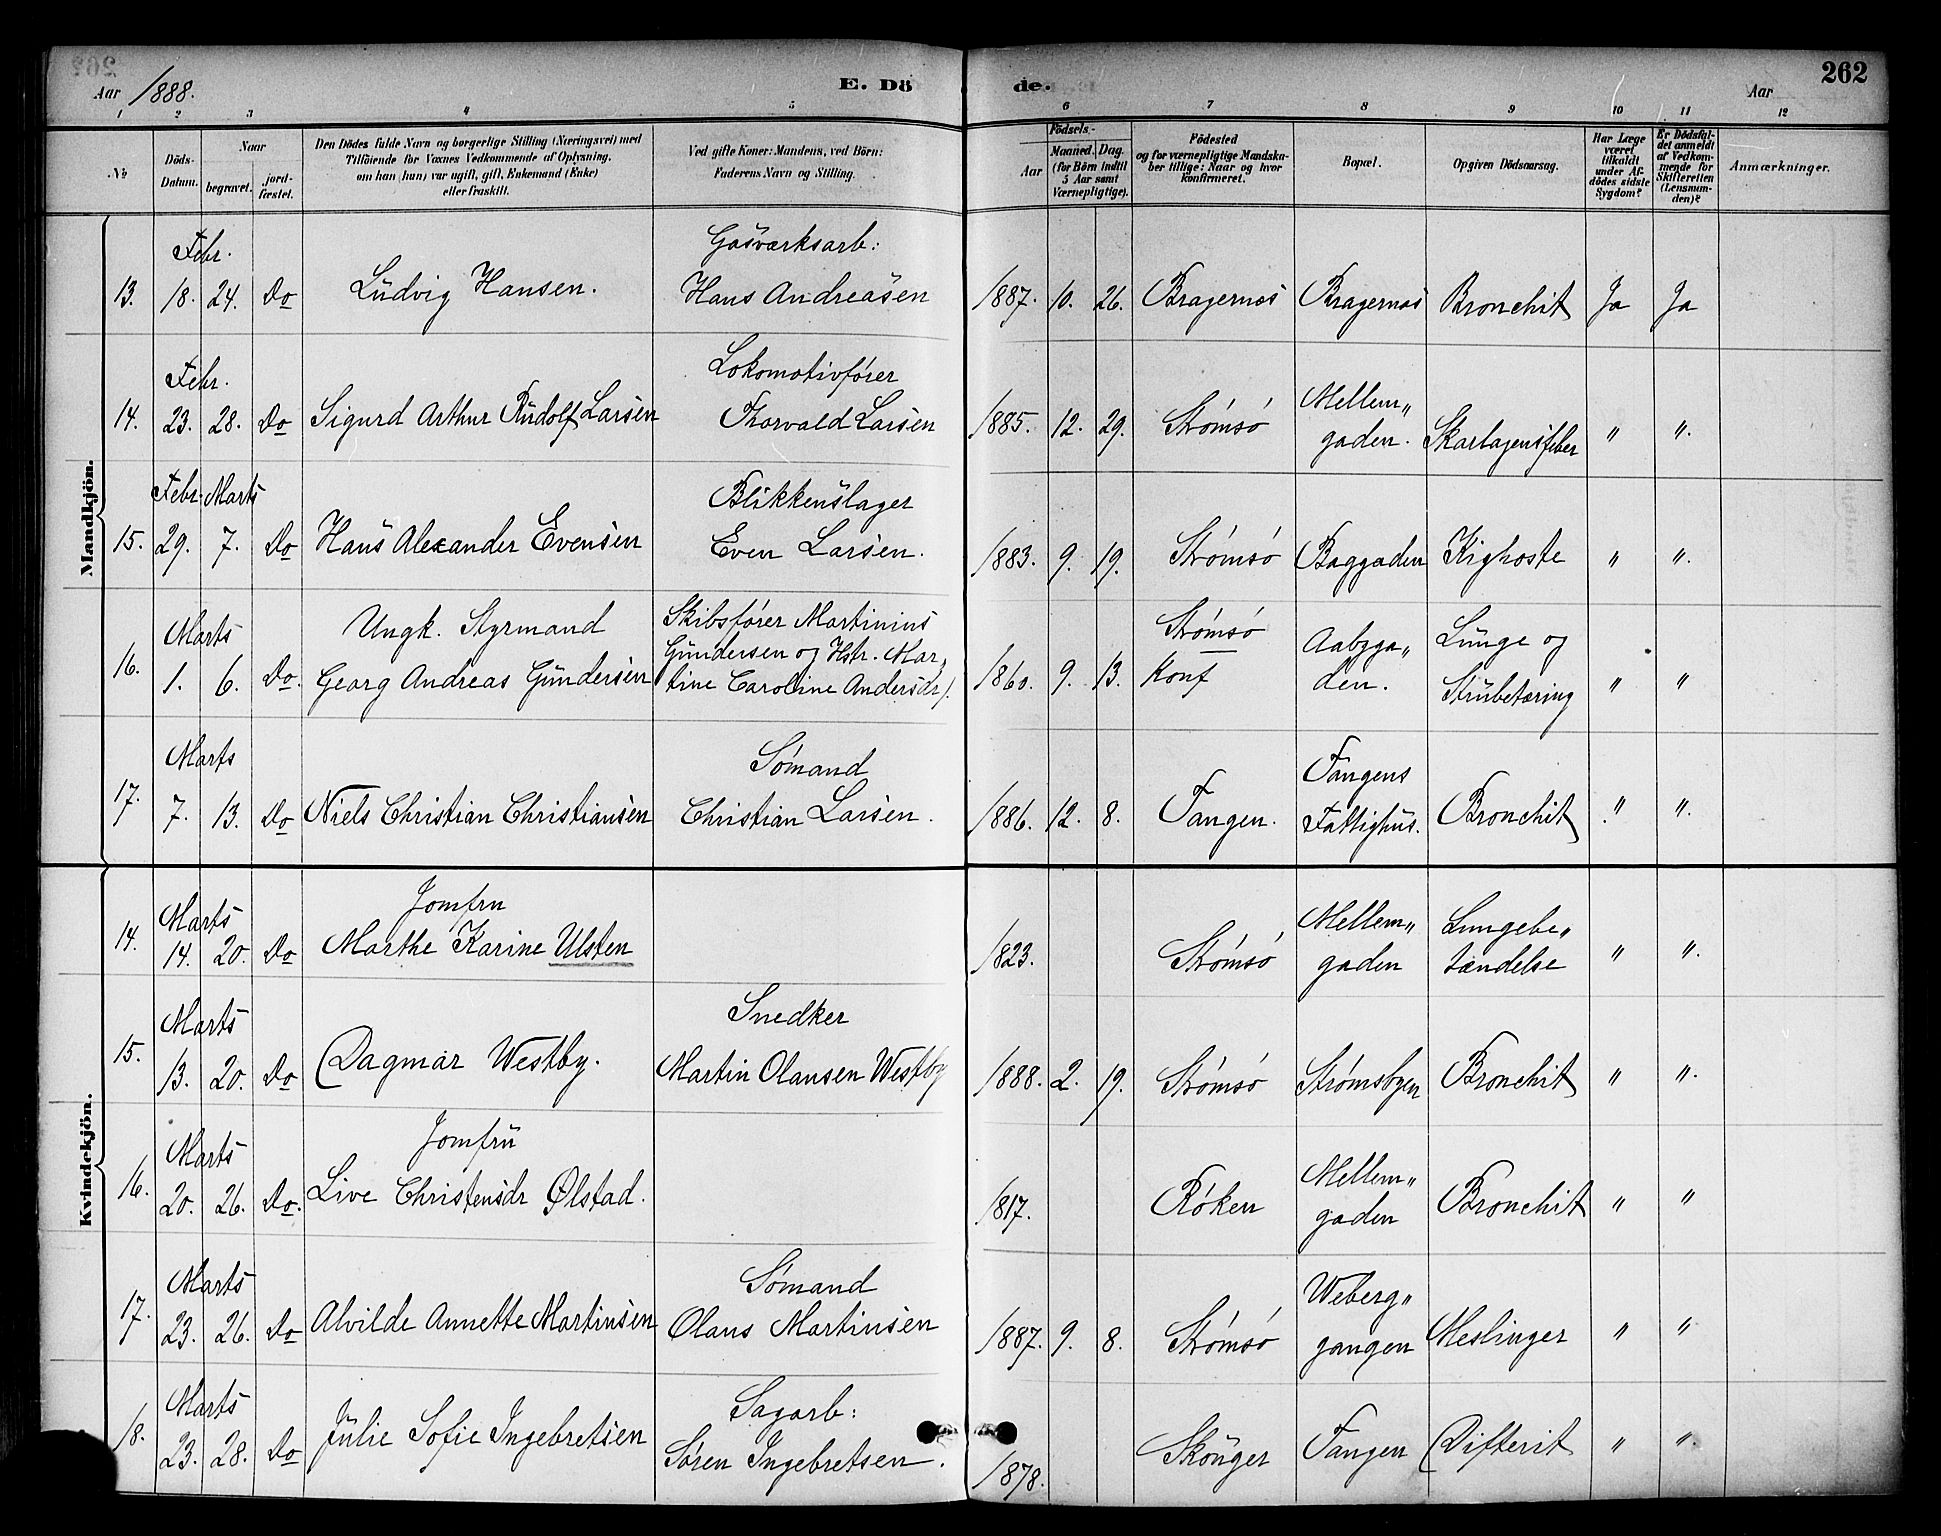 262
Aar 1888. E. Dö de. Aar
1 2 3 4 5 6 7 8 9 10 11 12
No
Döds-Datum.
Naar
begravet.
jord-fæstet.
Den Dödes fulde Navn og borgerlige Stilling (Næringsvei) med
Tilföiende for Voxnes Vedkommende af Oplysning,
om han (hun) var ugift, gift, Enkemand (Enke)
eller fraskilt.
Ved gifte Koner: Mandens, ved Börn:
Faderens Navn og Stilling.
Födsels-
Aar
Maaned. Dag.
(for Börn indtil
5 Aar samt
Værnepligtige).
Födested
og for værnepligtige Mandska-
ber tillige: Naar og hvor
konfirmeret.
Bopæl.
Opgiven Dödsaarsag.
Har Læge
været
tilkaldt
under Af-
dödes sidste
Sygdom?
Er Dödsfal-
det anmeldt
af Vedkom-
mende for
Skifteretten
(Lensman-
den)?
Anmærkninger.
Mandkjön.
Febr. Gasværksarb:
13. 18. 24. Do Ludvig Hansen. Hans Andreasen 1887. 10. 26. Bragernæs Bragernæs Bronchit Ja Ja
Febr. Lokomotivfører Mellem„
14. 23. 28. Do Sigurd Arthur Rudolf Larsen Thorvald Larsen 1885. 12. 29. Strømsø gaden. Skarlagensfeber " ".
Febr. Marts Blikkenslager
15. 29. 7. Do Hans Alexander Evensen Even Larsen. 1883. 9. 19. Strømsø Baggaden Kighoste " ".
Marts Ungk. Styrmand Skibsfører Martinius Strømsø Aabyga„ Lunge og
Gundersen og Hstr. Mar„
16. 1. 6. Do. Georg Andreas Gundersen tine Caroline Andersdr/. 1860. 9. 13. Konf den. Strubetæring " "
Marts Sømand Tangens
17. 7. 13. Do Niels Christian Christiansen Christian Larsen. 1886. 12. 8. Tangen. Fattighus. Bronchit " ".
Kvindekjön.
Marts Jomfru Mellem„ Lungebe„
14. 14. 20. Do Marthe Karine Ulsten 1823. Strømsø gaden tændelse " ".
Marts Snedker
15. 13. 20. Do Dagmar Westby. Martin Olausen Westby 1888. 2. 19. Strømsø Strømsbyen Bronchit " ".
Marts Jomfru Mellem„
16. 20. 26. Do. Live Christensdr Ølstad. 1817. Røken gaden Bronchit " "
Marts Sømand Weberg„
17. 23. 26. Do Alvilde Annette Martinsen Olaus Martinsen 1887. 9. 8. Strømsø gangen Meslinger " "
Marts Sagarb:
18. 23. 28. Do Julie Sofie Ingebretsen Søren Ingebretsen. 1878. Skouger Tangen Difterit " ".